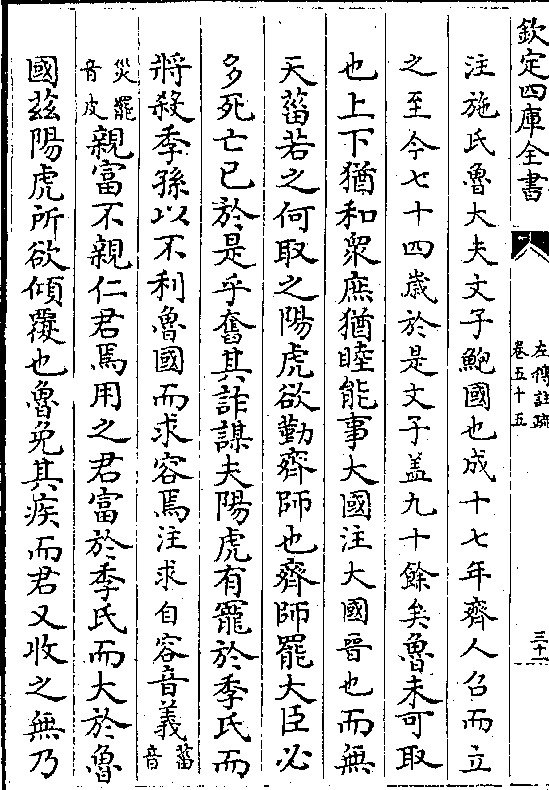 欽定四庫全書
左傳註疏
卷五十五
三十一
注施氏魯大夫文子鮑國也成十七年齊人召而立
之至今七十四歲於是文子盖九十餘矣魯未可取
也上下猶和衆庶猶睦能事大國注大國晉也而無
天菑若之何取之陽虎欲勤齊師也齊師罷大臣必
多死亡已於是乎奮其詐謀夫陽虎有寵於季氏而
將殺季孫以不利魯國而求容焉注求自容音義菑音
災罷音皮親富不親仁君焉用之君富於季氏而大於魯
國兹陽虎所欲傾覆也魯免其疾而君又收之無乃